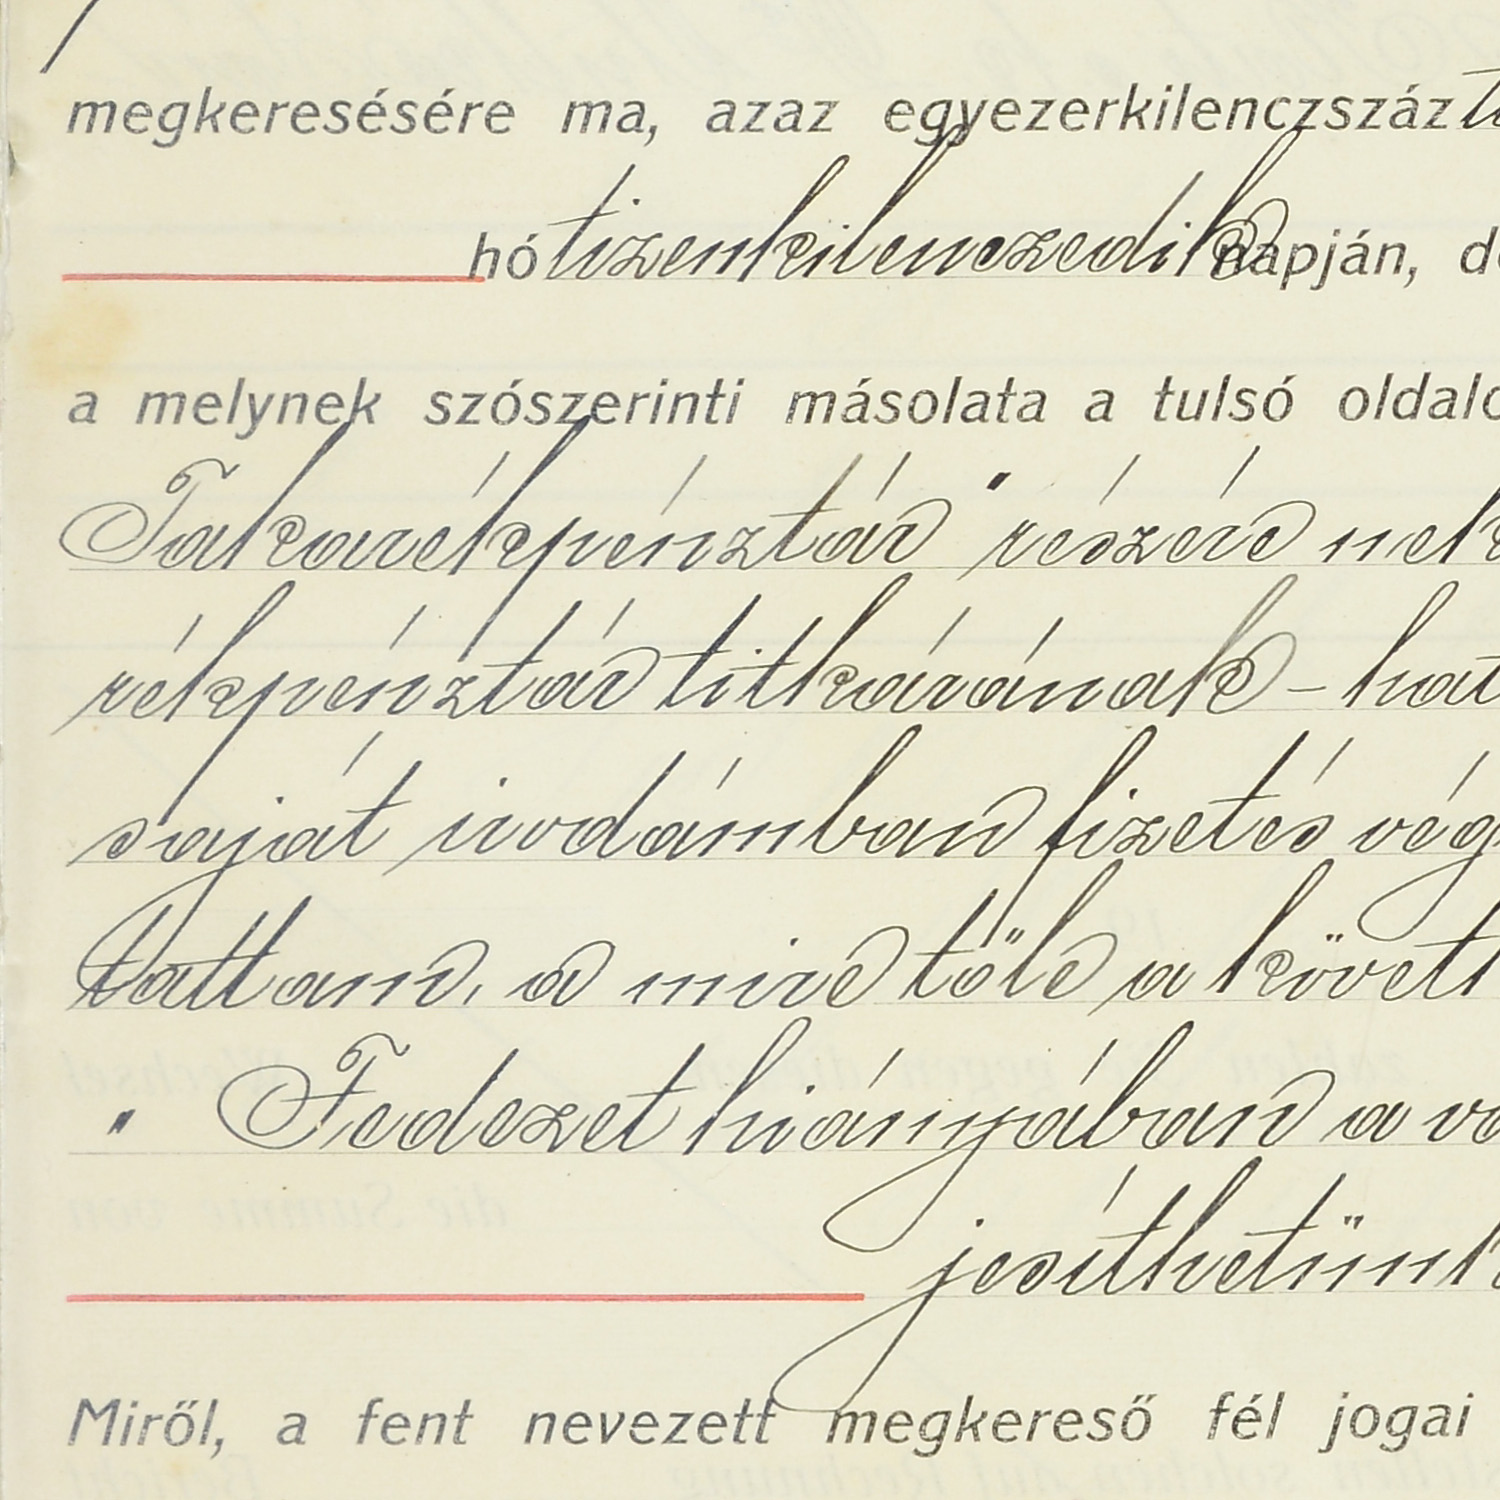 megkeresésére ma, azaz egyezerkilenczszáz
hó tizenkilenczedik napján,
a melynek szószerinti másolata a tulsó
Takarékpénztár" részére
rékpénztár titkárának -
saját irodámban fizetés
tattam, a mire tőle a
" Fedezet hiányában a
jesíthetünk
Miről, a fent nevezett megkereső fél jogai